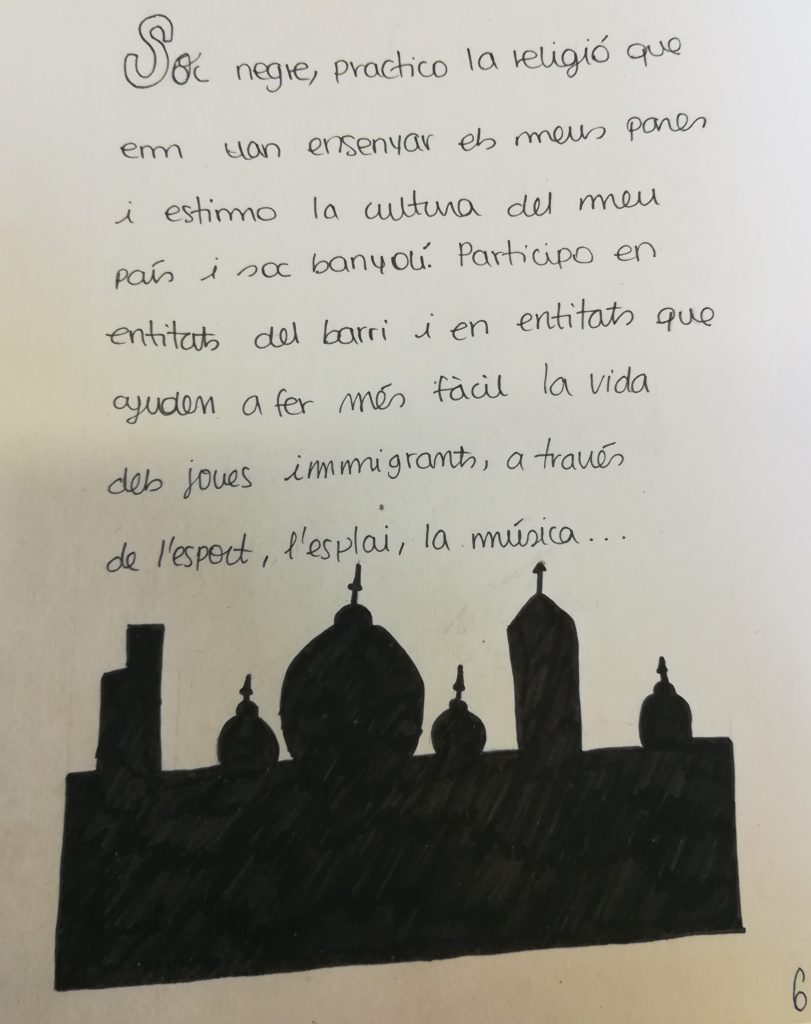 Soc negre, practico la religió que
em van ensenyar els meus pares
i estimo la cultura del meu
país i soc banyolí. Participo en
entitats del barri i en entitats que
ajuden a fer més fàcil la vida
dels joves immigrants, a través
de l'esport, l'esplai, la música...
6